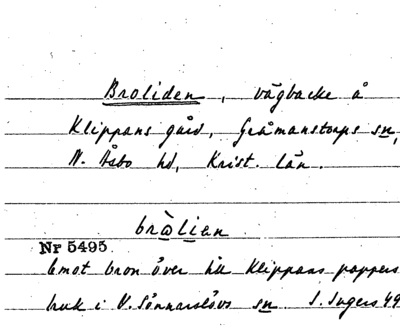 Broliden, vägbacke å
Klippans gård, Gråmanstorps sn,
N. Åsbo hd, Krist. län.
bròlien
Nr 5495
emot bron över till Klippans pappers
bruk i V. Sönnarslövs sn S. Ingers '49